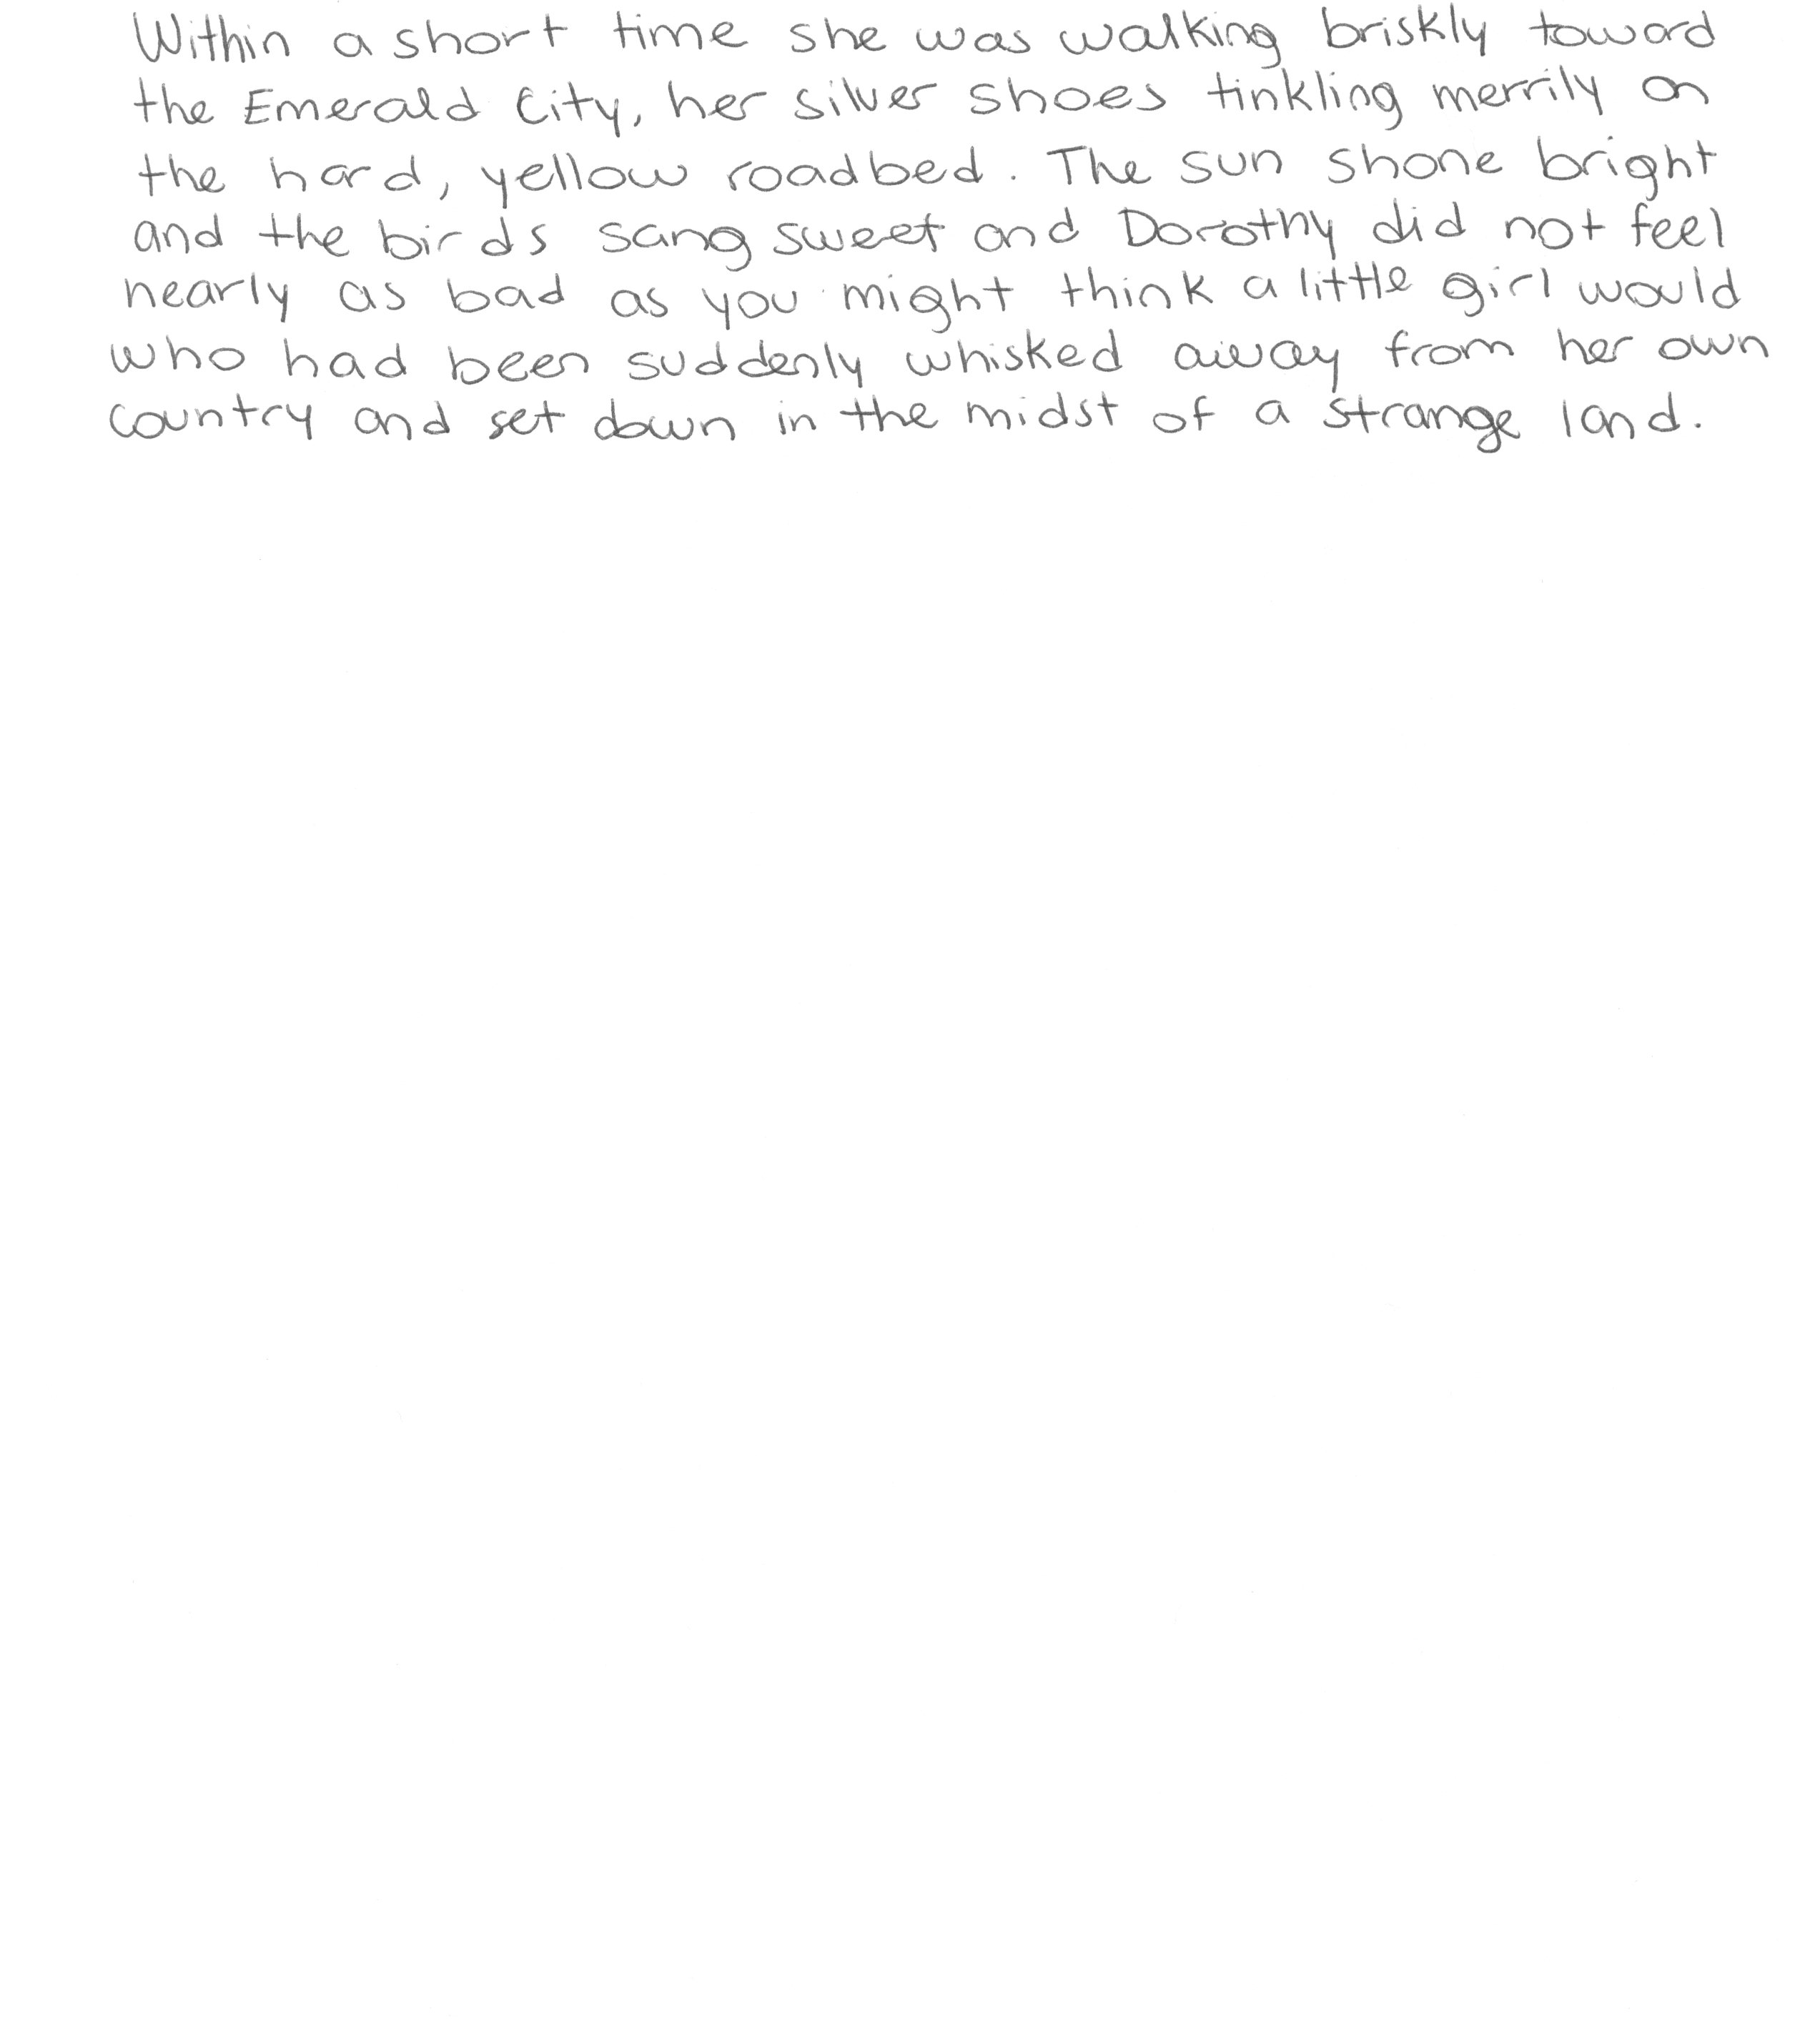 Within a short time she was walking briskly toward
the Emerald City, her silver shoes tinkling merrily on
the hard, yellow roadbed. The sun shone bright
and the birds sang sweet and Dorothy did not feel
nearly as bad as you might think a little girl would
who had been suddenly whisked away from her own
country and set down in the midst of a strange land.